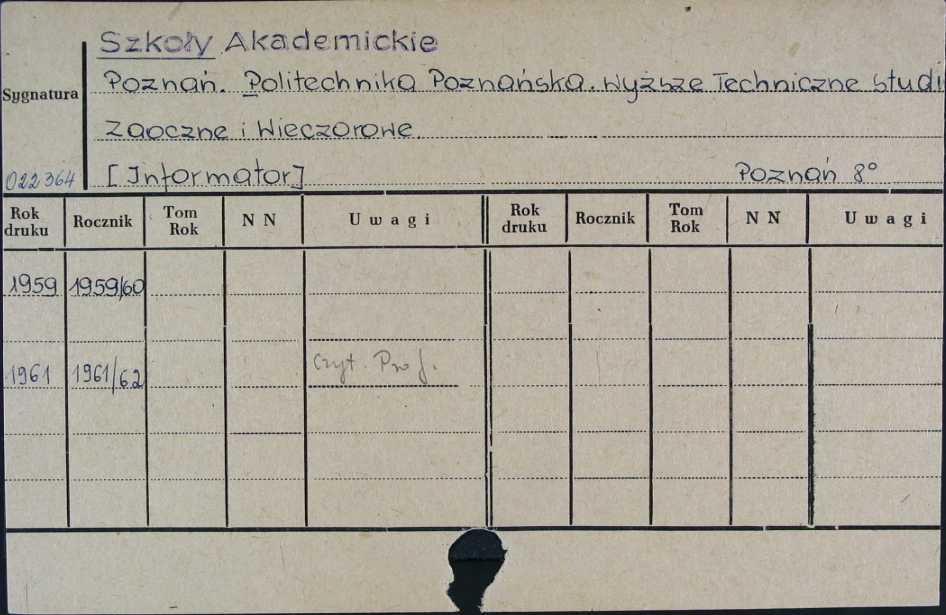 Szkoły Akademickie
Sygnatura
Poznań. Politechnika Poznańska. Wyższe Techniczne Studi
Zaoczne i Wieczorowe
022364
[Informator] Poznań 8°
Rok druku Rocznik Tom Rok N N Uwagi Rok druku Rocznik Tom Rok N N Uwagi
1959 1959/60
1961 1961/62 Czyt. Prof.